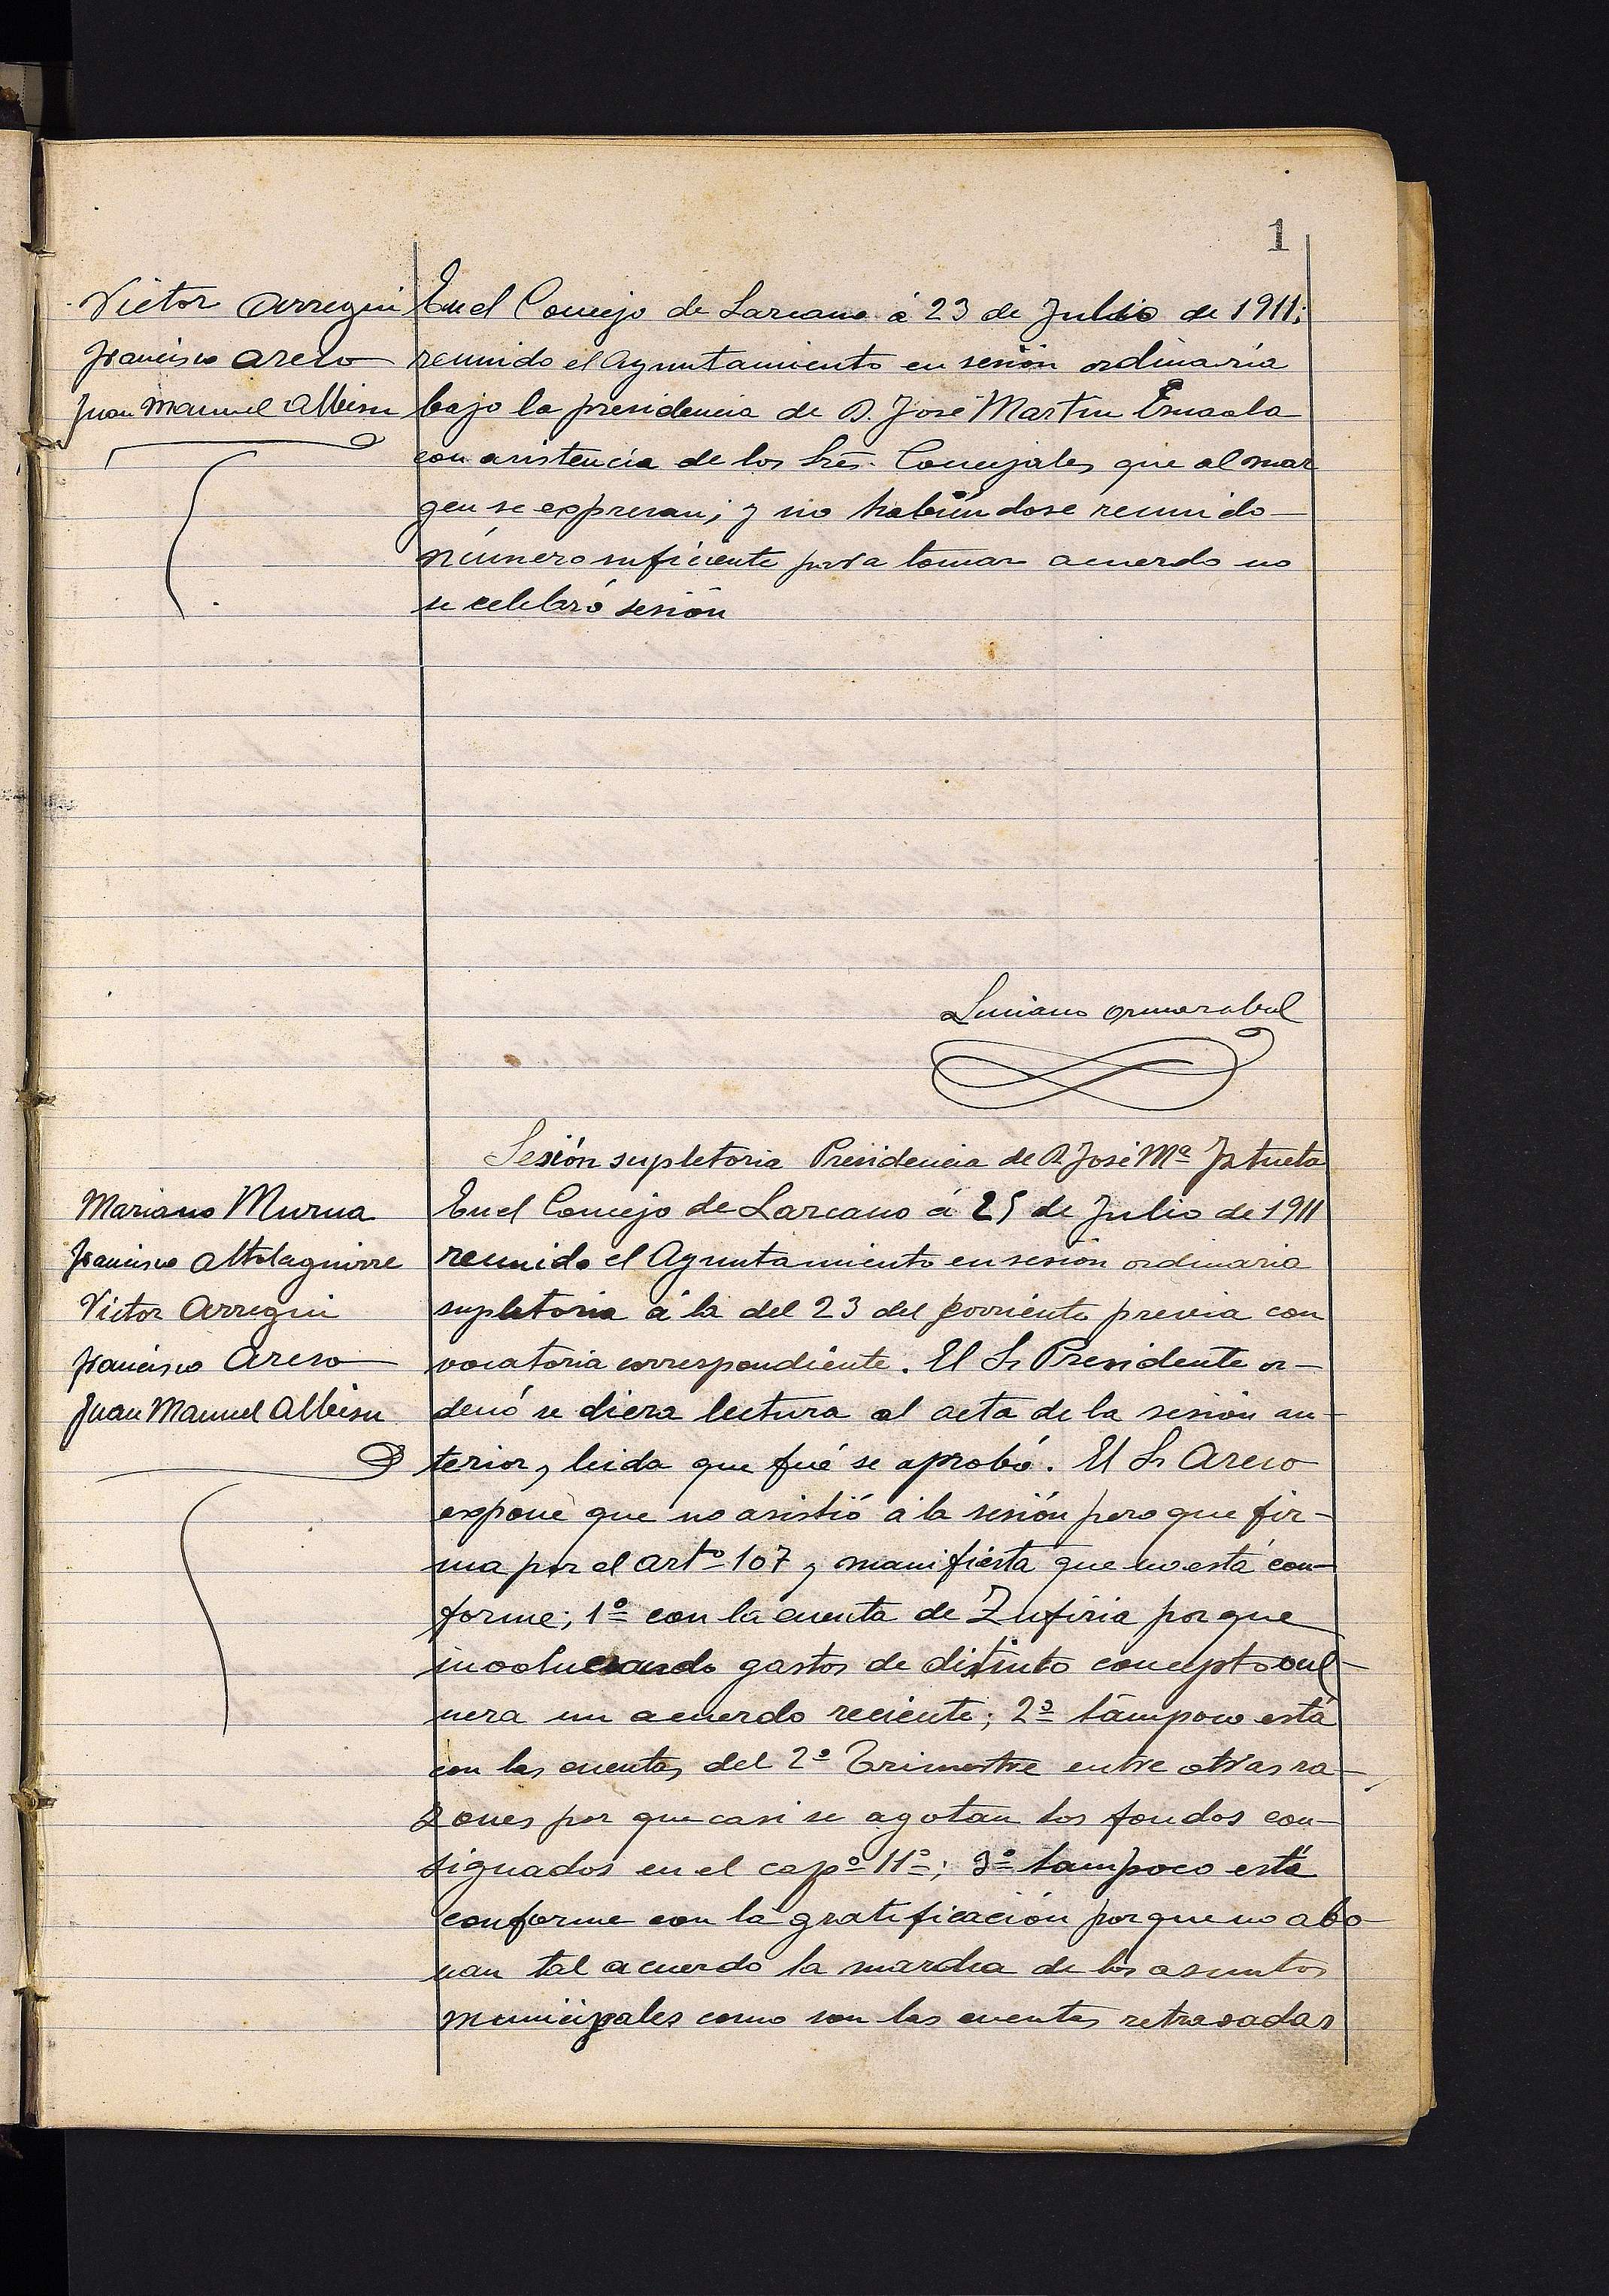 1
Victor Arregui
Francisco Areso
Juan Manuel Albisu
En el Concejo de Lazcano á 23 de Julio de 1911;
reunido el Ayuntamiento en sesión ordinaria
bajo la presidencia de D. José Martin
con asistencia de los Sres. Concejales que al mar
gen se expresan; y no habiéndose reunido
número suficiente para tomar acuerdo no
se celebró sesión
Luciano Ormazabal
Sesión supletoria Presidencia de D José Mª Iztueta
Mariano Murua
Francisco Altolaguirre
Victor Arregui
Francisco Areso
Juan Manuel Albisu
En el Concejo de Lazcano á 25 de Julio de 1911
reunido el Ayuntamiento en sesión ordinaria
supletoria á la del 23 del corriente previa con
vocatoria correspondiente. El Sr Presidente or-
denó se diera lectura al acta de la sesión an-
terior, leida que fué se aprobó. El Sr Areso
expone que no asistió á la sesión pero que fir-
ma por el artº 107 y manifiesta que no está con-
forme; 1º con la cuenta de Zufiria por que
involucrando gastos de distinto concepto vul-
nera un acuerdo reciente; 2º tampoco está
con las cuentas del 2º Trimestre entre otras ra-
zones por que casi se agotan los fondos con-
signados en el capº 11º; 3º tampoco está
conforme con la gratificación porque no abo-
nan tal acuerdo la marcha de los asuntos
municipales como son las cuentas retrasadas